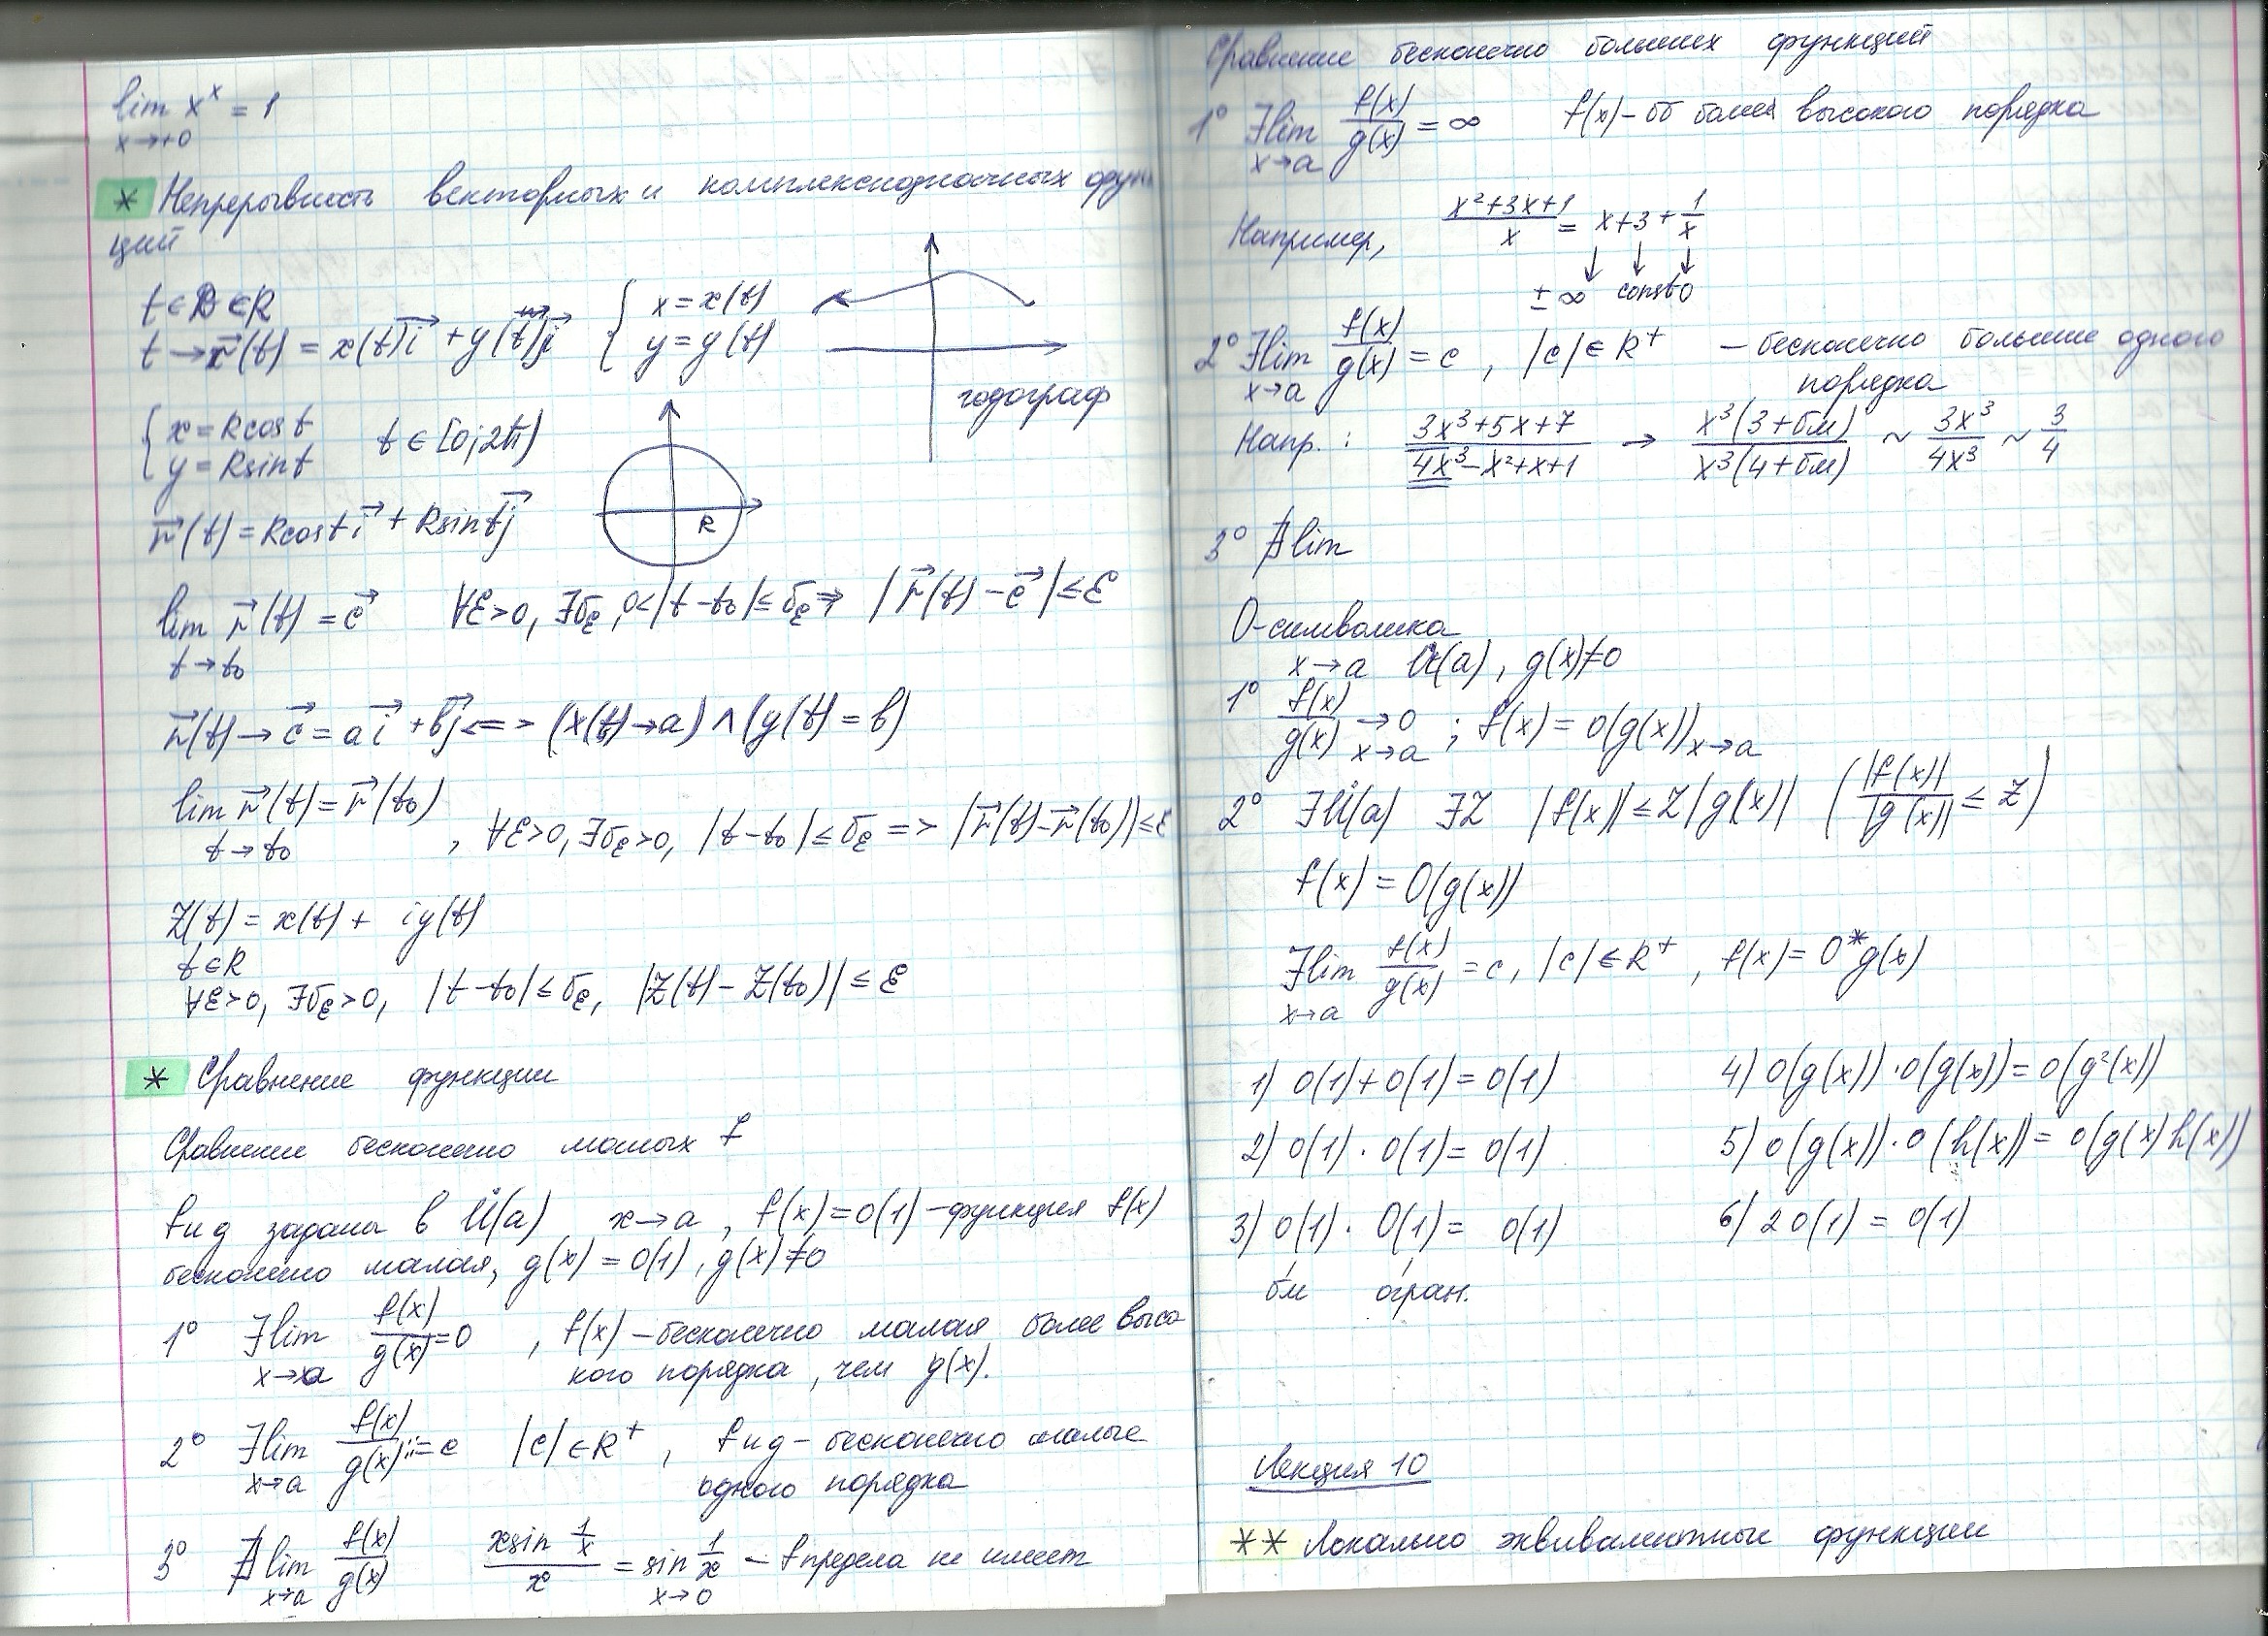 lim x^x = 1
x→+0
* Непрерывность векторных и комплекснозначных функ
ций
t ∈ D ∈ R
t → r⃗(t) = x(t)i⃗ + y(t)j⃗ { x = x(t)
y = y(t)
годограф
{ x = Rcost
y = Rsint t ∈ [0;2π)
R
r⃗(t) = Rcost i⃗ + Rsint j⃗
lim r⃗(t) = c⃗ ∀ε>0, ∃δε, 0<|t-t₀|≤δε ⇒ |r⃗(t) - c⃗| ≤ ε
t→t₀
r⃗(t) → c⃗ = a i⃗ + b j⃗ <=> (x(t)→a) ∧ (y(t) = b)
lim r⃗(t) = r⃗(t₀)
t→t₀ , ∀ε>0, ∃δε>0, |t-t₀| ≤ δε => |r⃗(t) - r⃗(t₀)| ≤ ε
Z(t) = x(t) + iy(t)
t ∈ R
∀ε>0, ∃δε>0, |t-t₀| ≤ δε, |Z(t) - Z(t₀)| ≤ ε
* Сравнение функции
Сравнение бесконечно малых f
f и g заданы в Ů(a) x→a, f(x) = o(1) - функция f(x)
бесконечно малая, g(x) = o(1), g(x) ≠ 0
1° ∃lim f(x)/g(x) = 0 , f(x) - бесконечно малая более высо
x→a кого порядка, чем g(x).
2° ∃lim f(x)/g(x) = c |c| ∈ R⁺, f и g - бесконечно малые
x→a одного порядка
3° ∄ lim f(x)/g(x) xsin 1/x / x = sin 1/x - f предела не имеет
x→a x→0
Сравнение бесконечно больших функций
1° ∃lim f(x)/g(x) = ∞ f(x) - бб более высокого порядка
x→a
Например, x²+3x+1 / x = x+3+ 1/x
↓ ↓ ↓
±∞ const 0
2° ∃lim f(x)/g(x) = c , |c| ∈ R⁺ - бесконечно большие одного
x→a порядка
Напр.: 3x³+5x+7 / 4x³-x²+x+1 → x³(3+бм) / x³(4+бм) ~ 3x³/4x³ ~ 3/4
3° ∄ lim
O-символика
x→a Ů(a), g(x)≠0
1° f(x)/g(x) → 0 ; f(x) = o(g(x)) x→a
x→a
2° ∃Ů(a) ∃Z |f(x)| ≤ Z|g(x)| ( |f(x)|/|g(x)| ≤ Z )
f(x) = O(g(x))
∃lim f(x)/g(x) = c, |c| ∈ R⁺, f(x) = O*g(x)
x→a
1) o(1)+o(1) = o(1) 4) o(g(x))·o(g(x)) = o(g²(x))
2) o(1)·o(1) = o(1) 5) o(g(x))·o(h(x)) = o(g(x)h(x))
3) o(1)·O(1) = o(1) 6) 2o(1) = o(1)
бм огран.
Лекция 10
** Локально эквивалентные функции